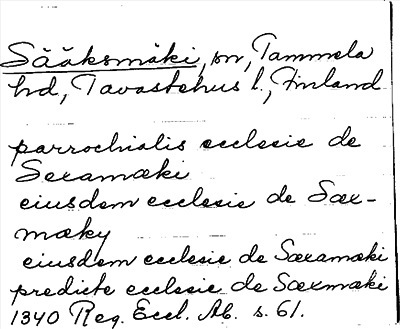 Sääksmäki, sn, Tammela
hd, Tavastehus l., Finland
parrochialis ecclesie de
Sexamæki
eiusdem ecclesie de Sæx-
mæky
eiusdem ecclesie de Sæxamæki
predicte ecclesie de Sæxmæki
1340 Reg. Eccl. Ab. s. 61.